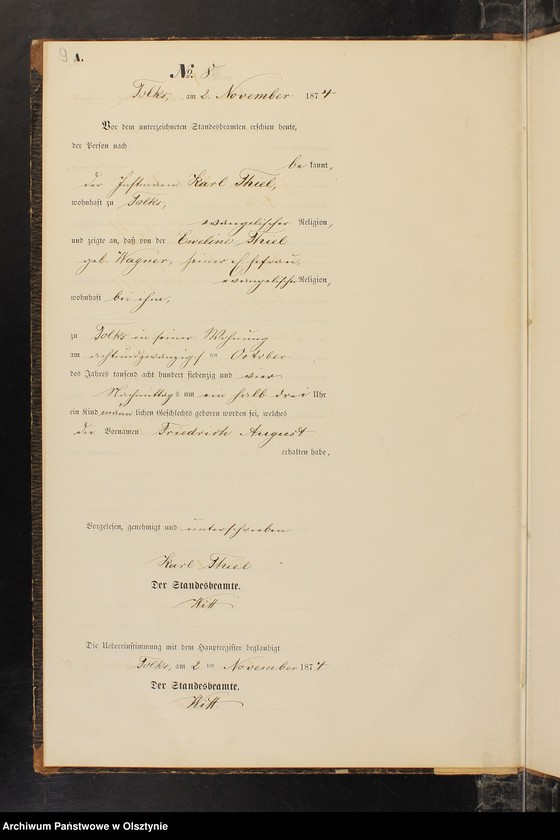 9 A.
No. 8
Tolks, am 2. November 1874
Vor dem unterzeichneten Standesbeamten erschien heute,
der Person nach
be kannt,
der Instmann Karl Thiel,
wohnhaft zu Tolks,
evangelischer Religion,
und zeigte an, daß von der Eweline Thiel
geb. Wagner, seiner Ehefrau,
evangelischer Religion,
wohnhaft bei ihm,
zu Tolks in seiner Wohnung
am achtundzwanzigst en October
des Jahres tausend acht hundert siebenzig und vier
Nachmittags um ein halb drei Uhr
ein Kind männ lichen Geschlechts geboren worden sei, welches
die Vornamen Friedrich August
erhalten habe.
Vorgelesen, genehmigt und unterschrieben
Karl Thiel
Der Standesbeamte.
Witt
Die Uebereinstimmung mit dem Hauptregister beglaubigt
Tolks, am 2 ten November 1874
Der Standesbeamte.
Witt
Archiwum Państwowe w Olsztynie